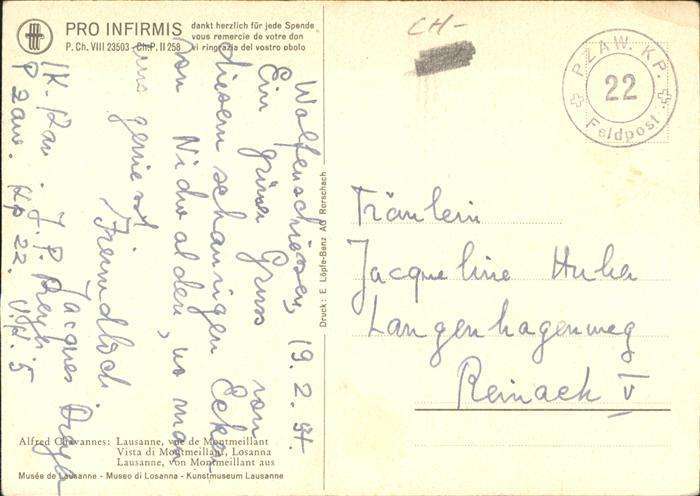 PRO INFIRMIS
P. Ch. VIII 23503 - Ch.P. II 258
dankt herzlich für jede Spende
vous remercie de votre don
vi ringrazia del vostro obolo
CH-
P.ZAW. KP.
22
Feldpost
Wolfenschiessen, 19.2.54.
Ein grüner Gruss vom
diesem schaurigen Ecken
von Nidwalden, wo man
uns geniesst
Freundlich
Jacques
IK. Kan. J.P.
P zaw. Kp 22.
Druck: E. Löpfe-Benz AG Rorschach
Fräulein
Jacqueline Huber
Langenhagenweg
Reinach V
Alfred Chavannes: Lausanne, vue de Montmeillant
Vista di Montmeillant, Losanna
Lausanne, von Montmeillant aus
Musée de Lausanne - Museo di Losanna - Kunstmuseum Lausanne